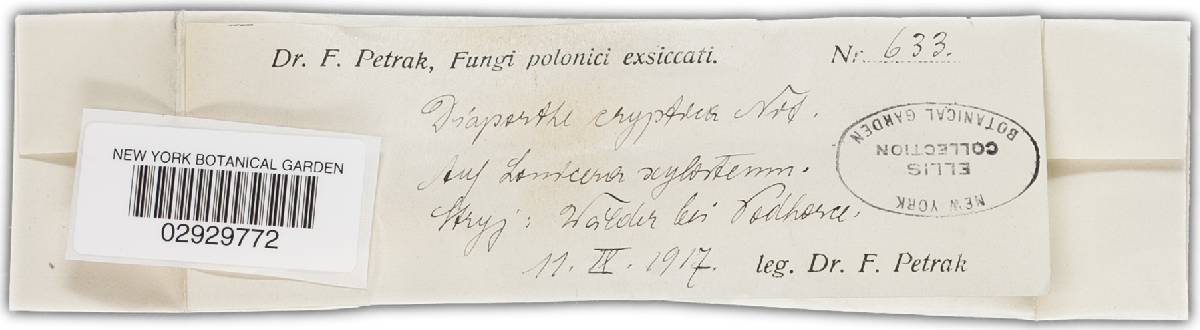 Dr. F. Petrak, Fungi polonici exsiccati. Nr. 633.
Diaporthe cryptica Nit.
Auf Lonicera xylosteum.
Stryj: Wälder bei Podhorce.
11. IV. 1917. leg. Dr. F. Petrak
NEW YORK BOTANICAL GARDEN
02929772
NEW YORK
ELLIS
COLLECTION
BOTANICAL GARDEN